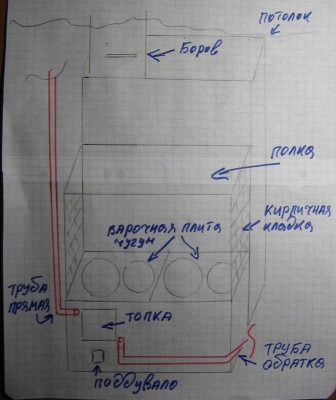 ПОТОЛОК
БОРОВ
ПОЛКА
ВАРОЧНАЯ ПЛИТА
ЧУГУН
КИРПИЧНАЯ
КЛАДКА
ТРУБА
ПРЯМАЯ
ТОПКА
ТРУБА
ОБРАТКА
ПОДДУВАЛО